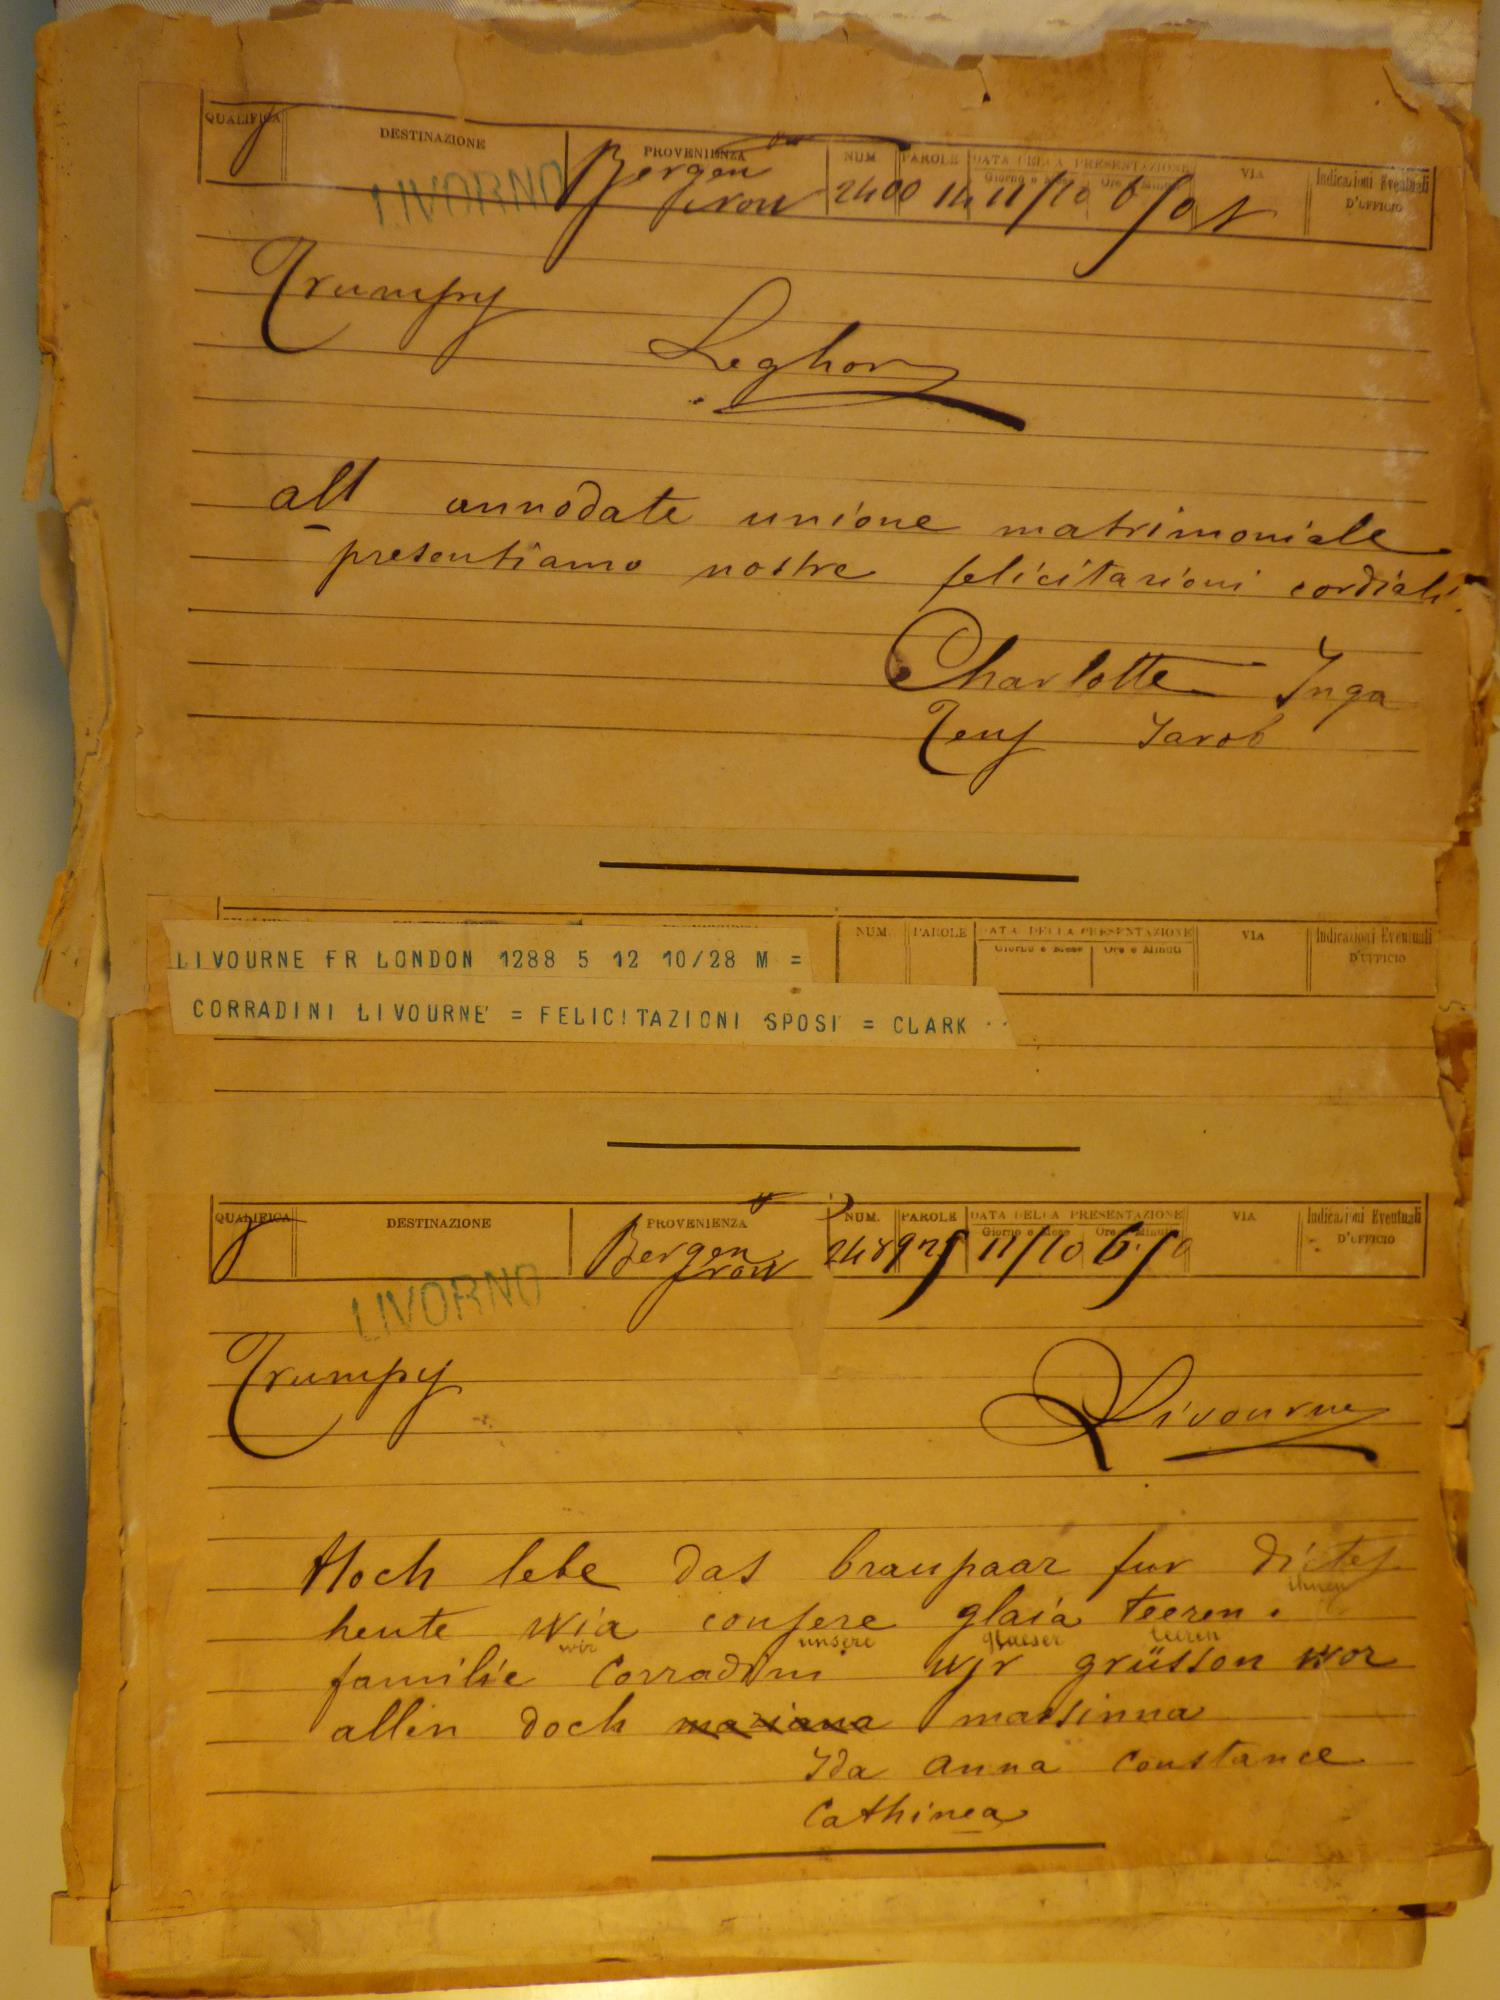 QUALIFICA DESTINAZIONE PROVENIENZA NUM. PAROLE DATA DELLA PRESENTAZIONE VIA Indicazioni Eventuali
Giorno e Mese Ore e Minuti D'UFFICIO
LIVORNO Bergen 2400 14 11/10 6/50
Trumpy
Leghorn
all annodate unione matrimoniale
presentiamo nostre felicitazioni cordiali.
Charlotte Inga
Jens Jacob
NUM. PAROLE DATA DELLA PRESENTAZIONE VIA Indicazioni Eventuali
Giorno e Mese Ore e Minuti D'UFFICIO
LIVOURNE FR LONDON 1288 5 12 10/28 M =
CORRADINI LIVOURNE = FELICITAZIONI SPOSI = CLARK
QUALIFICA DESTINAZIONE PROVENIENZA NUM. PAROLE DATA DELLA PRESENTAZIONE VIA Indicazioni Eventuali
Giorno e Mese Ore e Minuti D'UFFICIO
Bergen 11/10 6/50
LIVORNO
Trumpy
Livourne
Hoch lebe das braupaar fur
ihnen
heute wia consere glaia teeren.
wir unsere glaeser leeren
familie Corradini wir grüsson wor
allin doch mariana marsinna
Ida Anna Constance
Cathinca